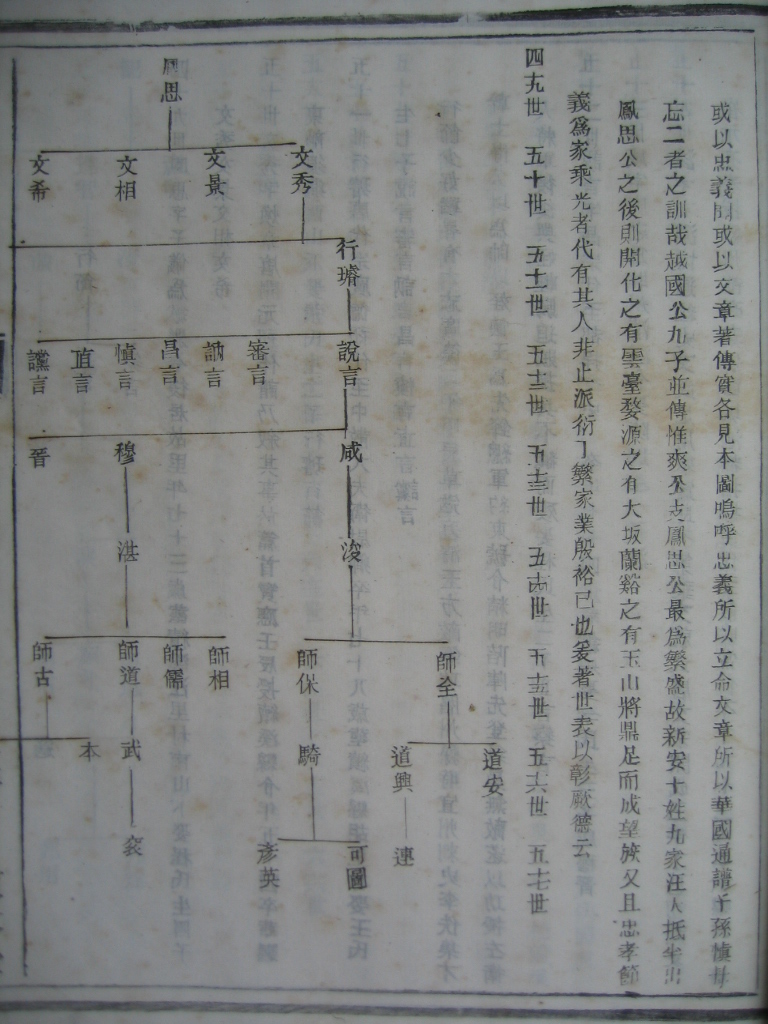 或以忠義顯或以文章著傳實各見本圖嗚呼忠義所以立命文章所以華國通譜子孫慎毋
忘二者之訓哉越國公九子並傳惟爽公支鳳思公最爲繁盛故新安十姓九家汪人抵半出
鳳思公之後則開化之有雲臺婺源之有大坂蘭谿之有玉山將鼎足而成望族又且忠孝節
義爲家乘光者代有其人非止派衍丁繁家業殷裕已也爰著世表以彰厥德云
四九世 五十世 五十一世 五十二世 五十三世 五十四世 五十五世 五十六世 五十七世
鳳思
文秀 文景 文相 文希
行璿
說言 審言 訥言 昌言 慎言 直言 讜言
咸 穆 晉
浚 湛
師全 師保 師相 師儒 師道 師古
道安 道興 騎 武 本
連 可圖 彥英 裒